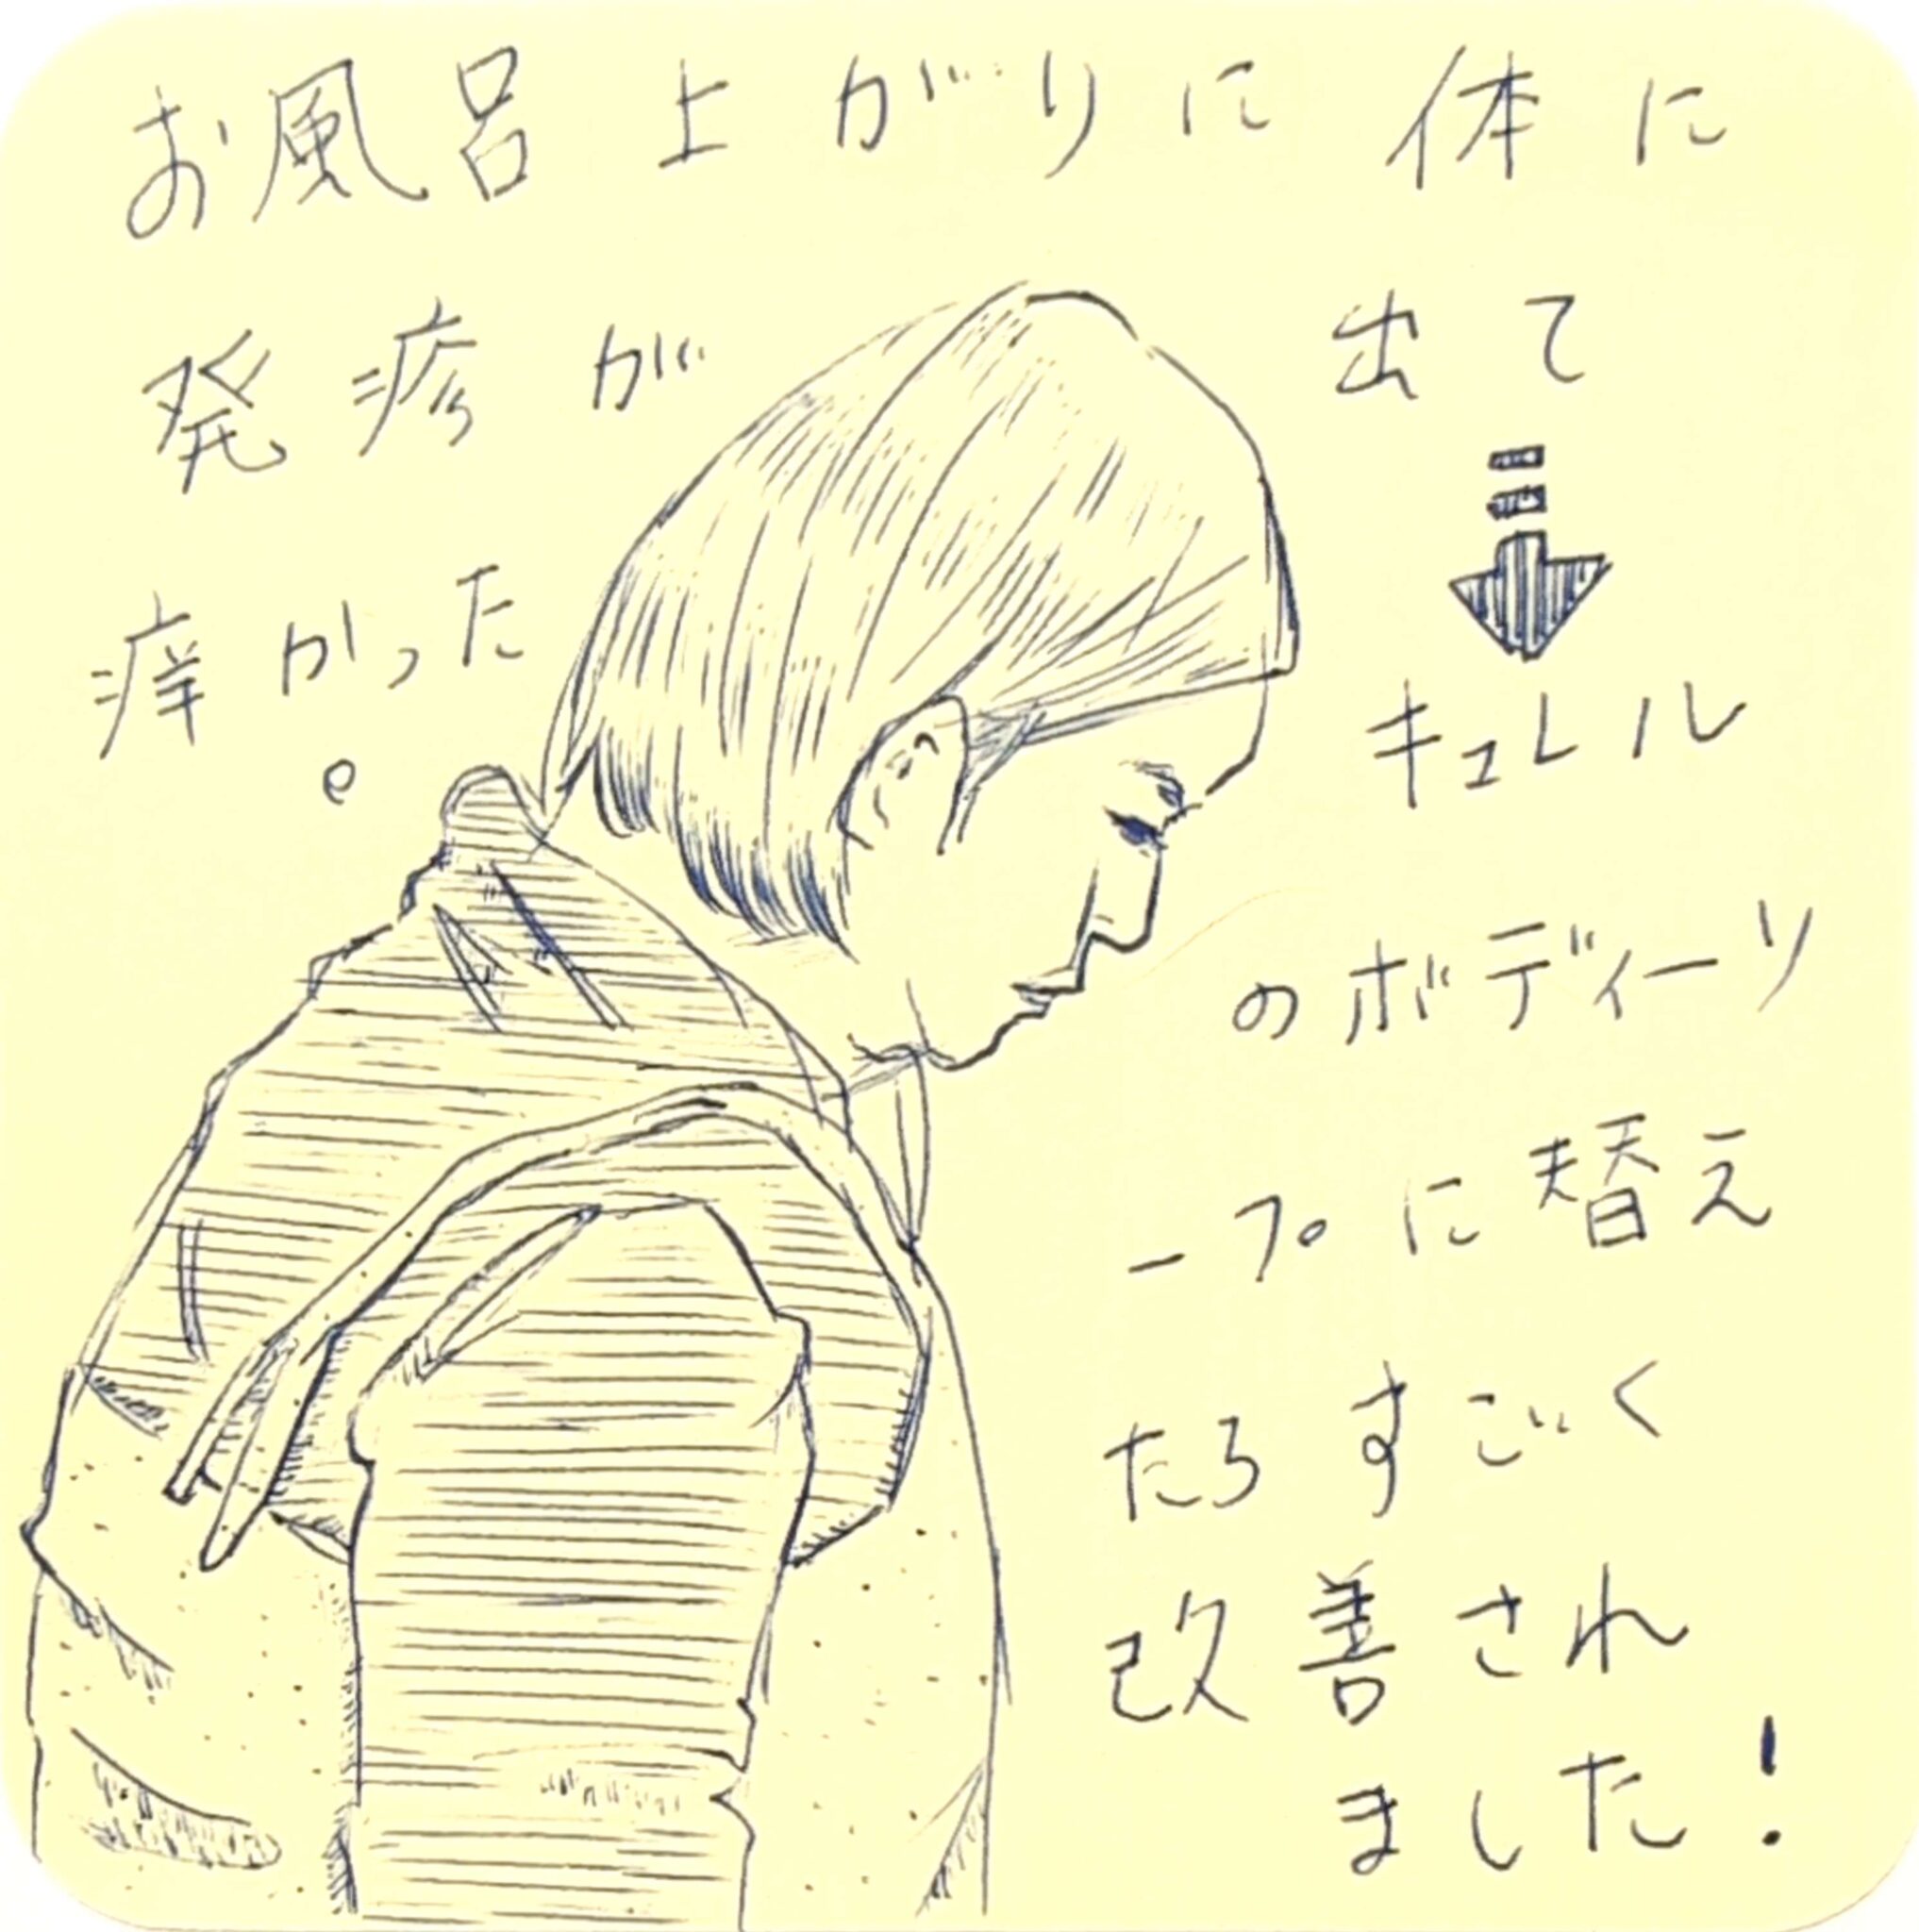 お風呂上がりに体に
発疹が出て
痒かった。
キュレル
のボディーソ
ープに替え
たらすごく
改善され
ました!